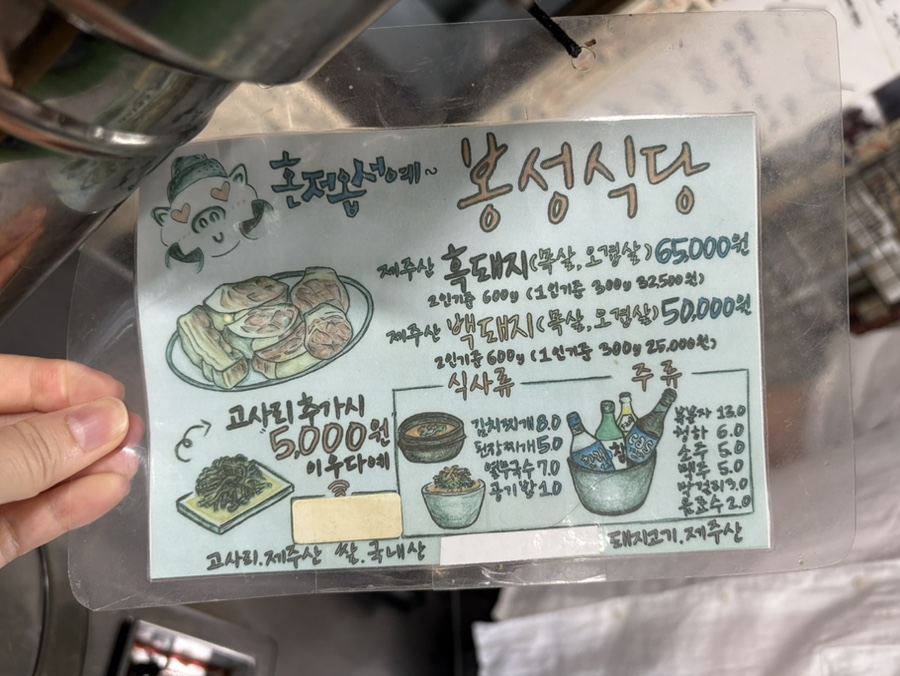 혼저옵서예~
봉성식당
제주산 흑돼지(목살, 오겹살) 65,000원
2인기준 600g (1인기준 300g 32,500원)
제주산 백돼지(목살, 오겹살) 50,000원
2인기준 600g (1인기준 300g 25,000원)
고사리 추가시
5,000원
이우다예
식사류
김치찌개 8.0
된장찌개 5.0
열무국수 7.0
공기밥 1.0
주류
복분자 13.0
청하 6.0
소주 5.0
맥주 5.0
막걸리 3.0
음료수 2.0
고사리.제주산 쌀.국내산
돼지고기.제주산